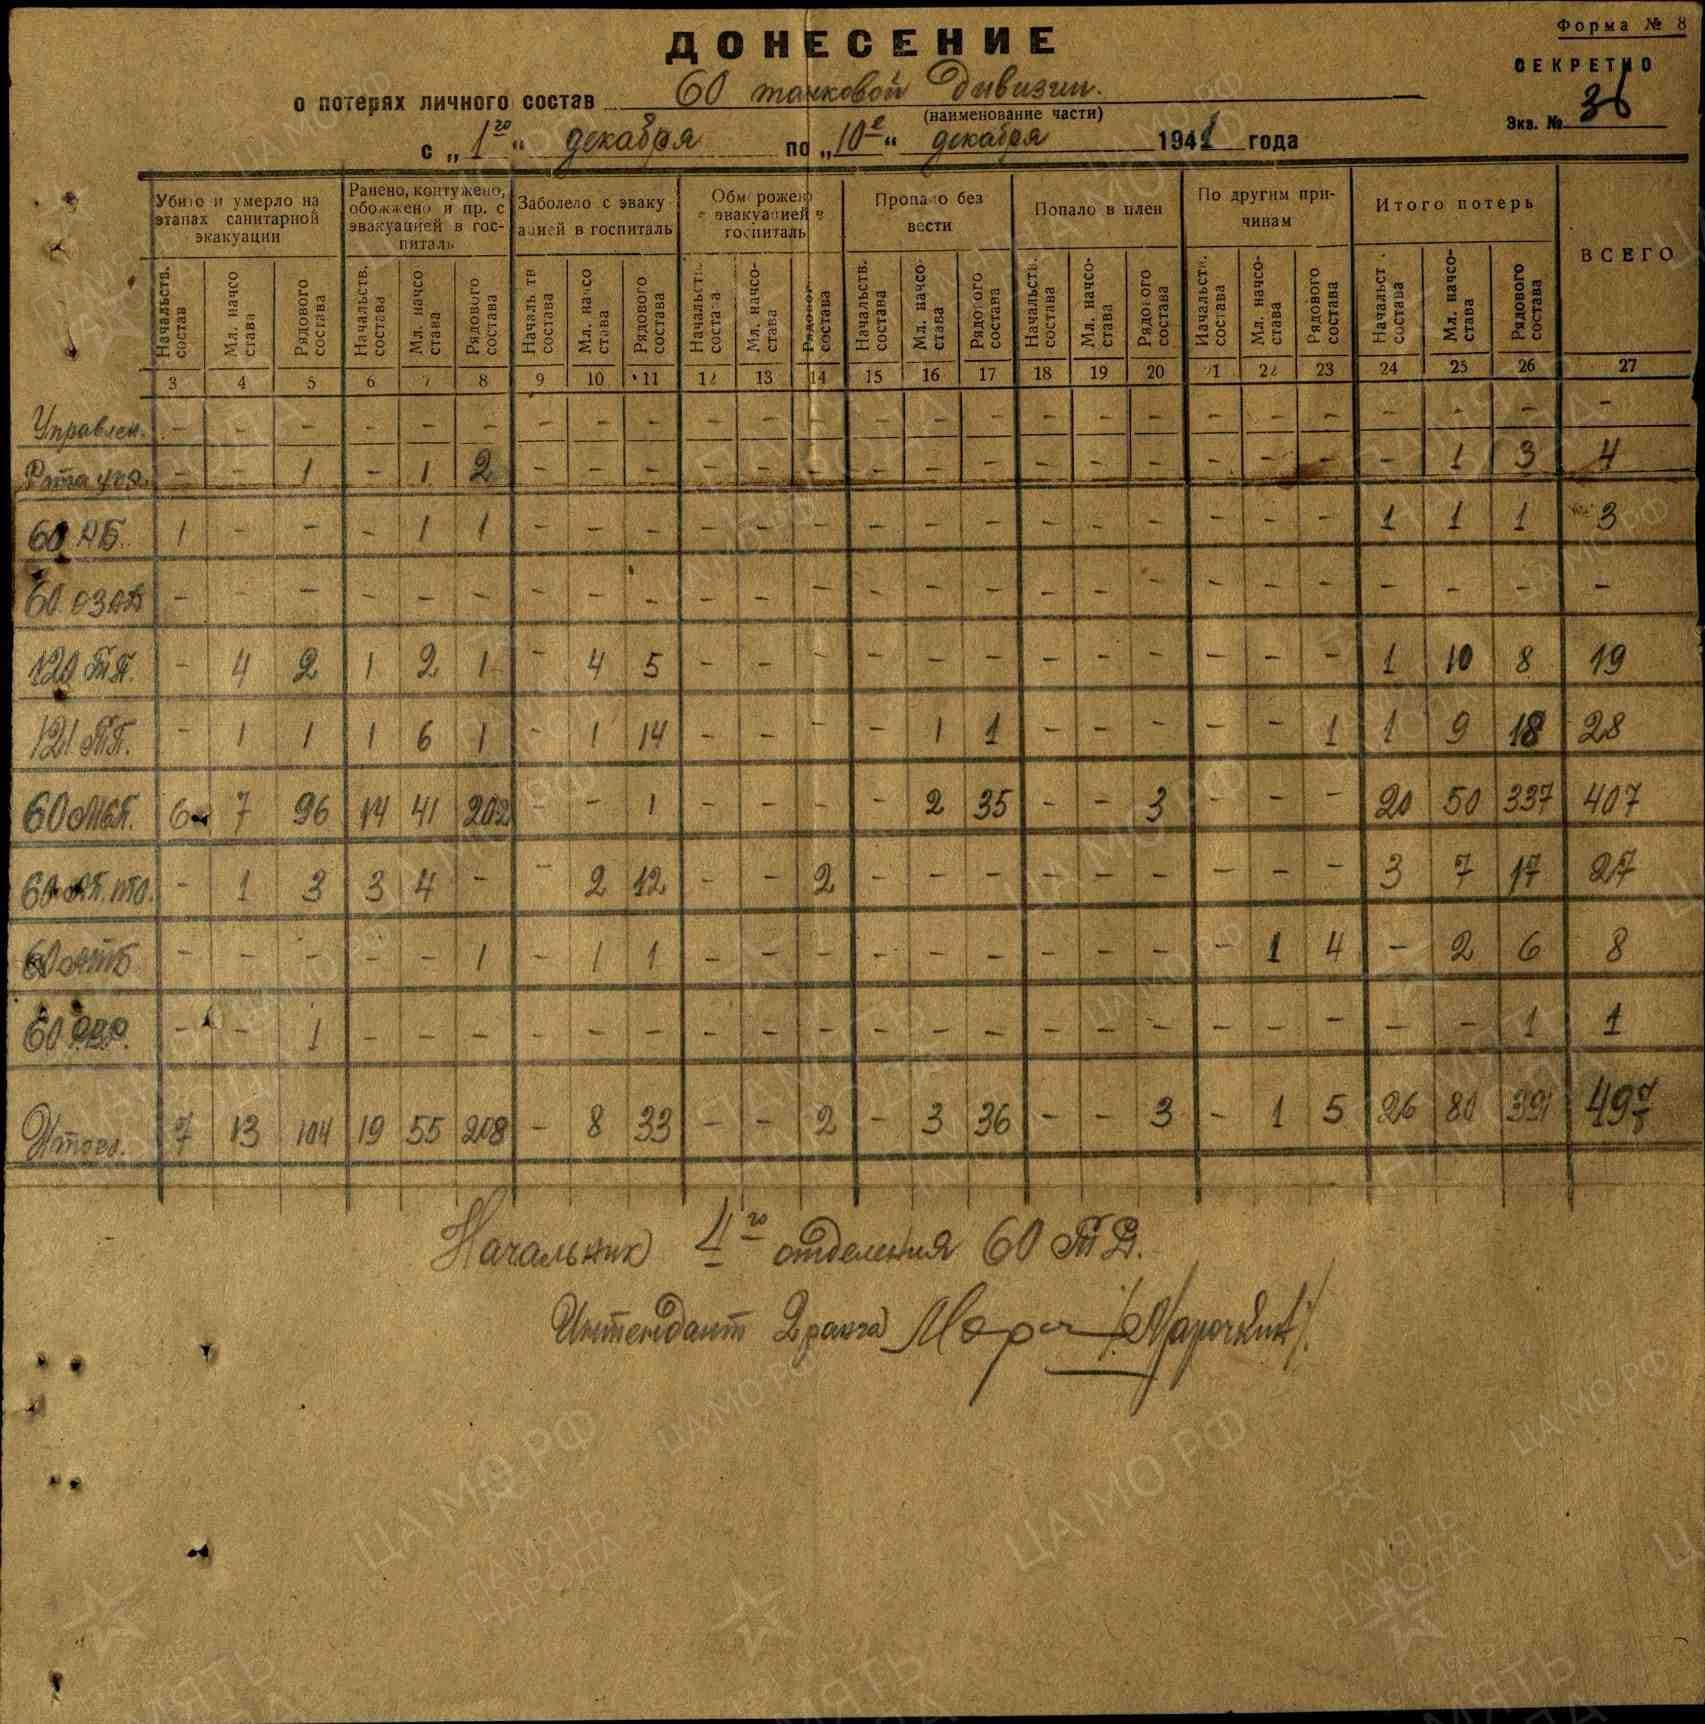 Форма № 8
ДОНЕСЕНИЕ
СЕКРЕТНО
о потерях личного состав 60 танковой дивизии.
(наименование части)
Экз. № 36
с „1го“ декабря по „10е“ декабря 1941 года
Убито и умерло на этапах санитарной эвакуации | Ранено, контужено, обожжено и пр. с эвакуацией в госпиталь | Заболело с эвакуацией в госпиталь | Обморожено с эвакуацией в госпиталь | Пропало без вести | Попало в плен | По другим причинам | Итого потерь | ВСЕГО
Начальств. состав | Мл. начсостава | Рядового состава | Начальств. состава | Мл. начсостава | Рядового состава | Начальств. состава | Мл. начсостава | Рядового состава | Начальств. состава | Мл. начсостава | Рядового состава | Начальств. состава | Мл. начсостава | Рядового состава | Начальств. состава | Мл. начсостава | Рядового состава | Начальств. состава | Мл. начсостава | Рядового состава | Начальст. состава | Мл. начсостава | Рядового состава
3 4 5 6 7 8 9 10 11 12 13 14 15 16 17 18 19 20 21 22 23 24 25 26 27
Управлен. - - - - - - - - - - - - - - - - - - - - - - - - -
Рота - - 1 - 1 2 - - - - - - - - - - - - - - - - 1 3 4
60 АБ. 1 - - - 1 1 - - - - - - - - - - - - - - - 1 1 1 3
60 ОЗАД - - - - - - - - - - - - - - - - - - - - - - - - -
120 ТП. - 4 2 1 2 1 - 4 5 - - - - - - - - - - - - 1 10 8 19
121 ТП. - 1 1 1 6 1 - 1 14 - - - - 1 1 - - - - - 1 1 9 18 28
60 МСП. 6 7 96 14 41 202 - - 1 - - - - 2 35 - - 3 - - - 20 50 337 407
60 АП. ПТО. - 1 3 3 4 - - 2 12 - - 2 - - - - - - - - - 3 7 17 27
60 АТБ - - - - - 1 - 1 1 - - - - - - - - - - 1 4 - 2 6 8
60 - - 1 - - - - - - - - - - - - - - - - - - - - 1 1
Итого. 7 13 104 19 55 208 - 8 33 - - 2 - 3 36 - - 3 - 1 5 26 80 391 497
Начальник 4го отделения 60 ТД.
Интендант 2 ранга /Марочкин/.
ЦАМО РФ
ПАМЯТЬ НАРОДА